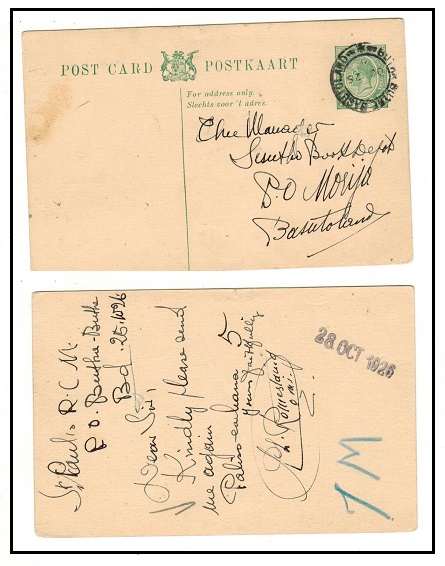 POST CARD POSTKAART
For address only.
Slechts voor 't adres.
BUTHA BUTHE BASUTOLAND
The Manager
Sesutho Book Depot
P.O Morija
Basutoland
St Paul's R.C.M.
P.O. Buthe-Buthe
25.10.26
Dear Sir,
Kindly please send
me again
5
yours faithfully
o.m.i.
28 OCT 1926
7M